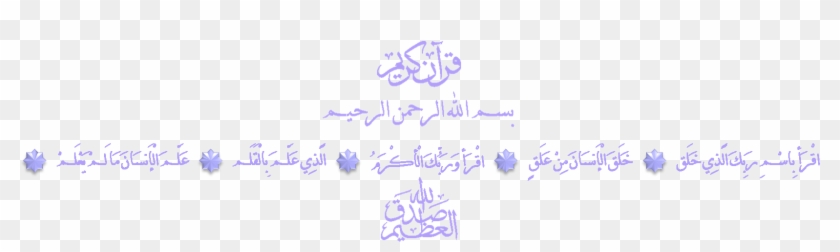 قرآن كريم
بسم الله الرحمن الرحيم
اقْرَأْ بِاسْمِ رَبِّكَ الَّذِي خَلَقَ خَلَقَ الْإِنسَانَ مِنْ عَلَقٍ اقْرَأْ وَرَبُّكَ الْأَكْرَمُ الَّذِي عَلَّمَ بِالْقَلَمِ عَلَّمَ الْإِنسَانَ مَا لَمْ يَعْلَمْ
صدق الله العظيم